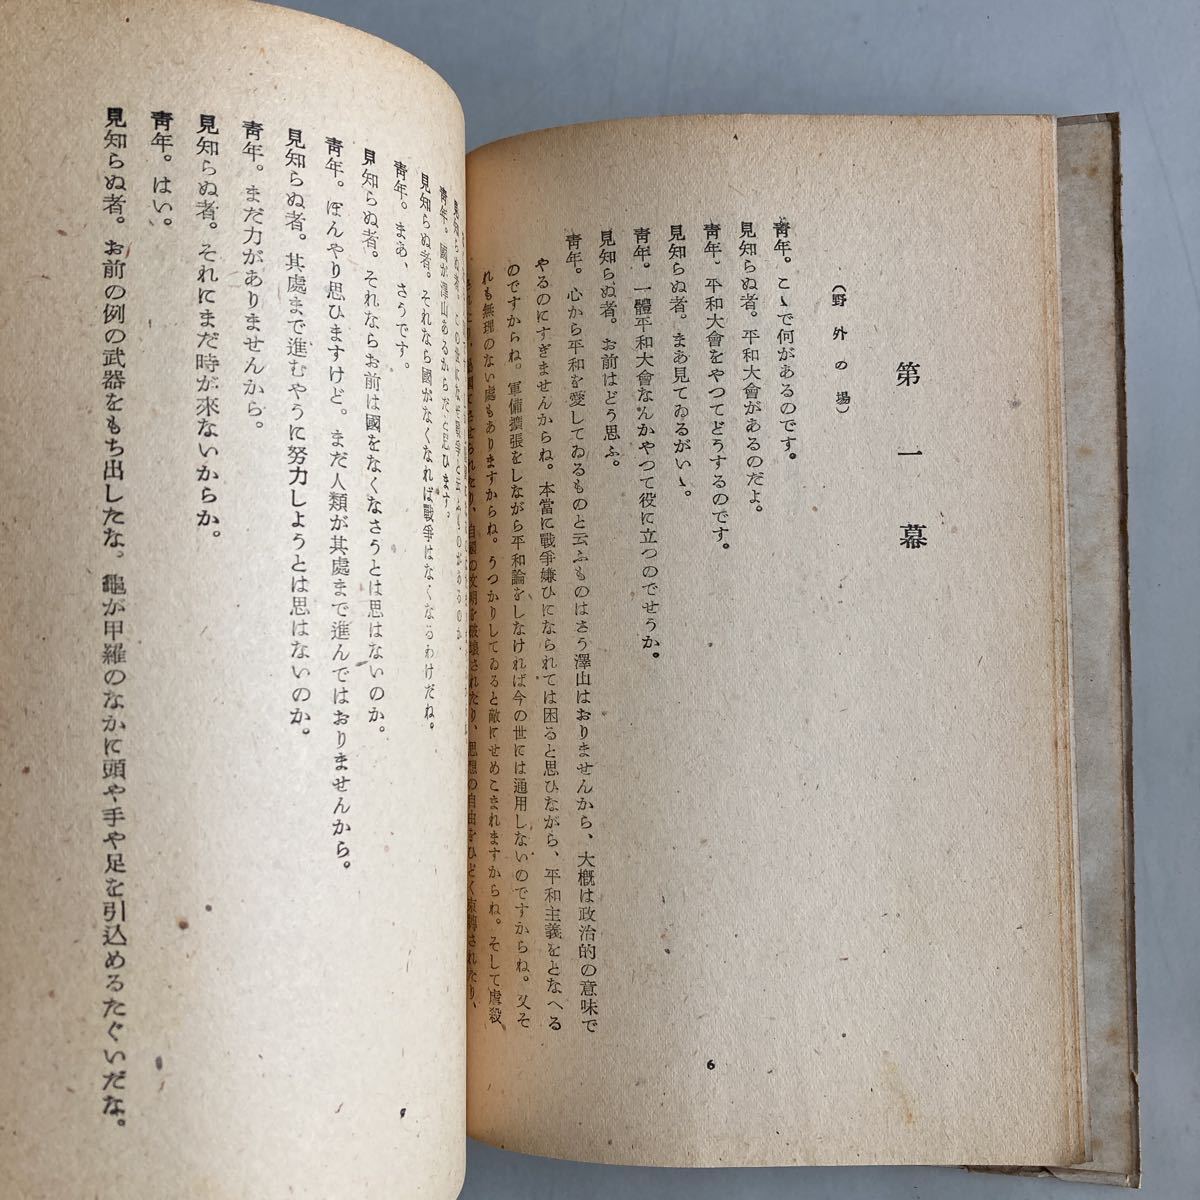 第一幕
（野外の場）
靑年。こゝで何があるのです。
見知らぬ者。平和大會があるのだよ。
靑年。平和大會をやつてどうするのです。
見知らぬ者。まあ見てゐるがいゝ。
靑年。一體平和大會なんかやつて役に立つのでせうか。
見知らぬ者。お前はどう思ふ。
靑年。心から平和を愛してゐるものと云ふものはさう澤山はおりませんから、大槪は政治的の意味で
やるのにすぎませんからね。本當に戰爭嫌ひになられては困ると思ひながら、平和主義をとなへる
のですからね。軍備擴張をしながら平和論をしなければ今の世には通用しないのですからね。又そ
れも無理のない處もありますからね。うつかりしてゐると敵にせめこまれますからね。そして虐殺
自國の文明を破壞されたり、思想の自由をひどく
6
見知らぬ者。この世になぜ戰爭と云ふものがあるのか。
靑年。國が澤山あるからだと思ひます。
見知らぬ者。それなら國がなくなれば戰爭はなくなるわけだね。
靑年。まあ、さうです。
見知らぬ者。それならお前は國をなくなさうとは思はないのか。
靑年。ぼんやり思ひますけど。まだ人類が其處まで進んではおりませんから。
見知らぬ者。其處まで進むやうに努力しようとは思はないのか。
靑年。まだ力がありませんから。
見知らぬ者。それにまだ時が來ないからか。
靑年。はい。
見知らぬ者。お前の例の武器をもち出したな。龜が甲羅のなかに頭や手や足を引込めるたぐいだな。